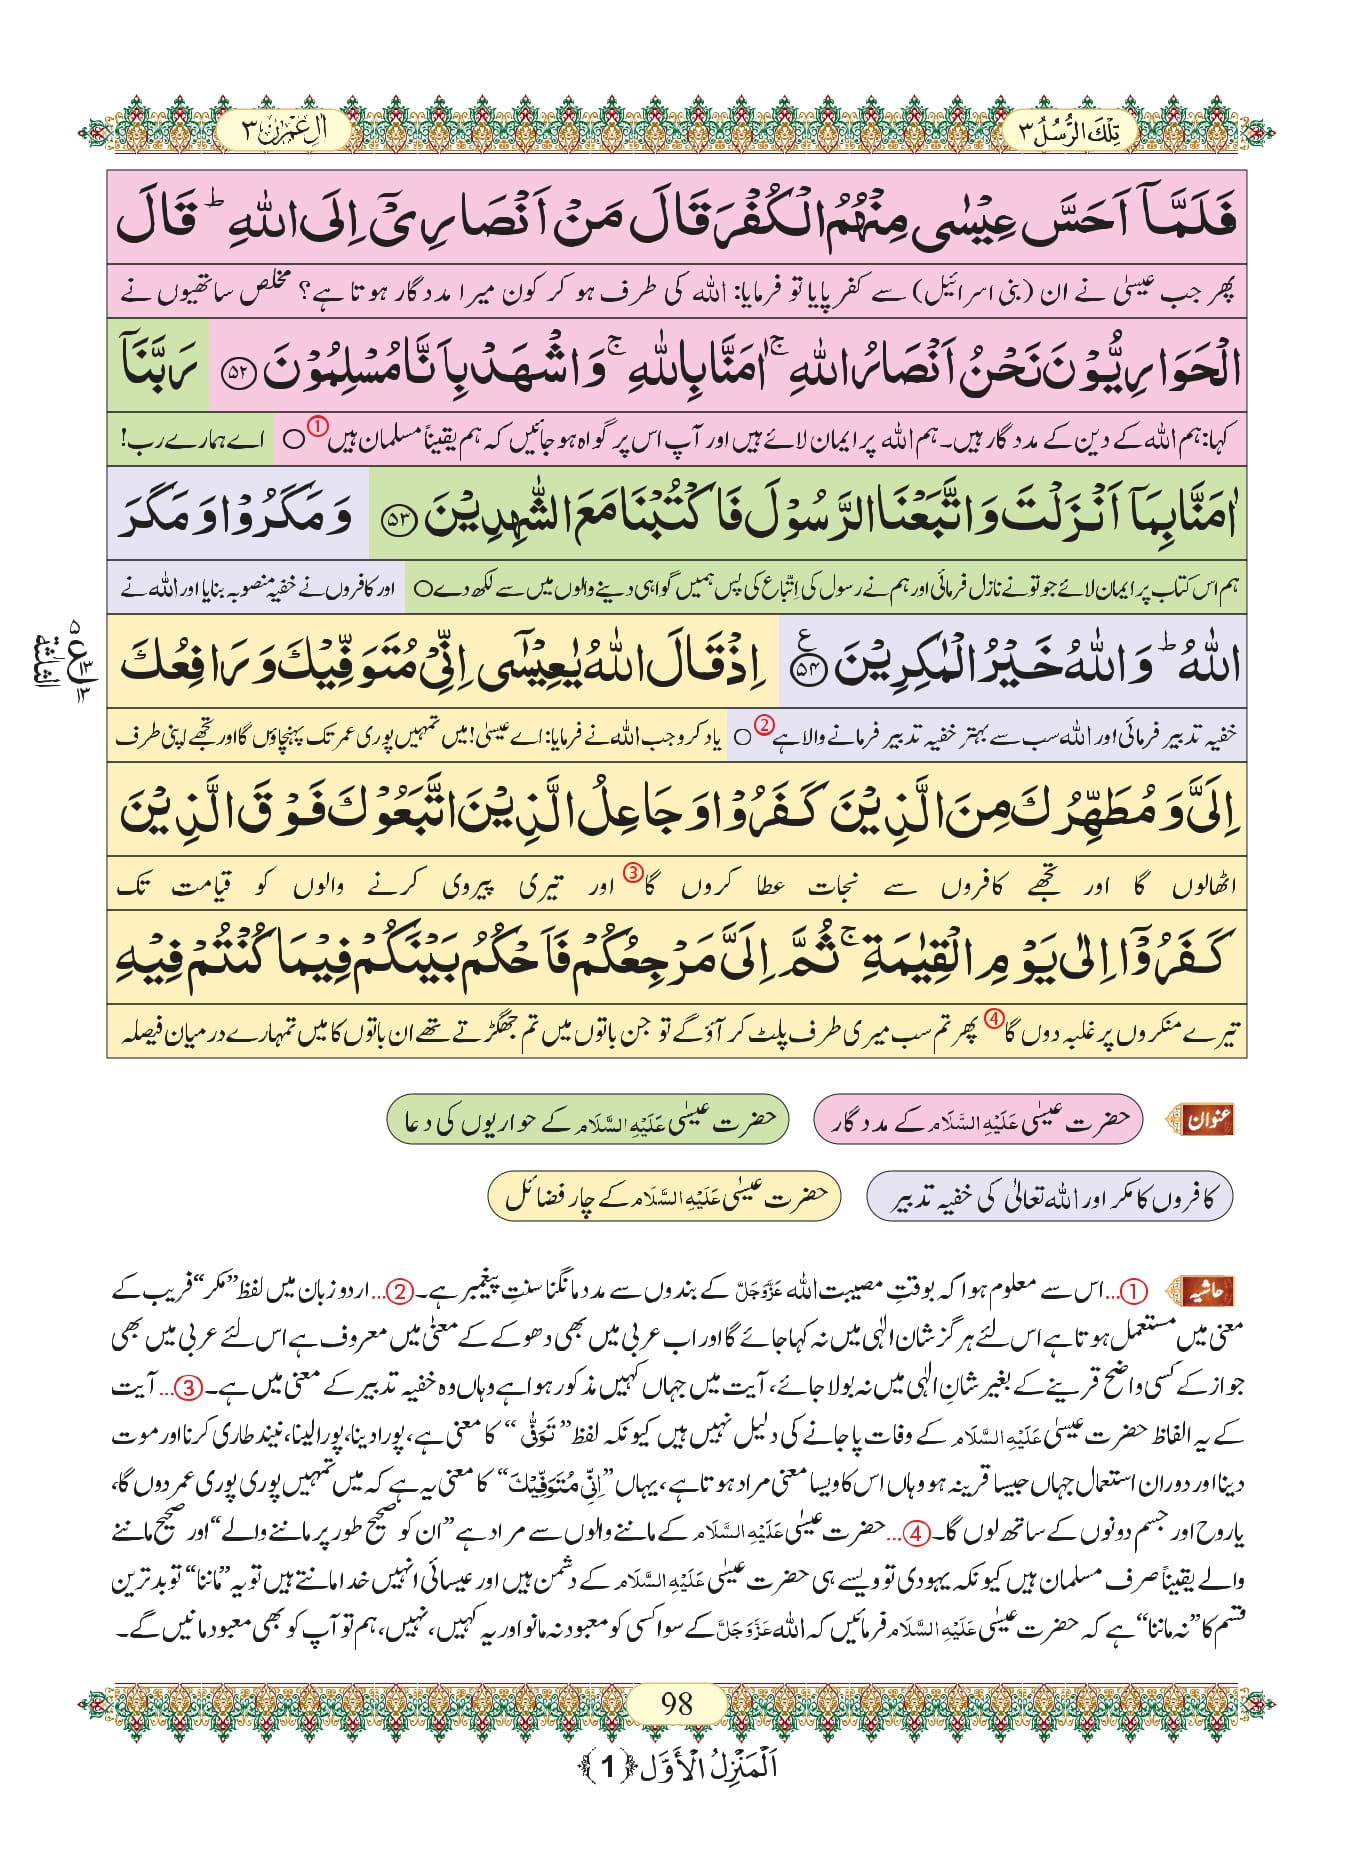 تِلْكَ الرُّسُلُ ۳
اٰلِ عِمْرٰن ۳
فَلَمَّاۤ اَحَسَّ عِیْسٰى مِنْهُمُ الْكُفْرَ قَالَ مَنْ اَنْصَارِیْۤ اِلَى اللّٰهِؕ قَالَ
پھر جب عیسیٰ نے ان (بنی اسرائیل) سے کفر پایا تو فرمایا: اللہ کی طرف ہو کر کون میرا مددگار ہوتا ہے؟ مخلص ساتھیوں نے
الْحَوَارِیُّوْنَ نَحْنُ اَنْصَارُ اللّٰهِۚ اٰمَنَّا بِاللّٰهِۚ وَ اشْهَدْ بِاَنَّا مُسْلِمُوْنَ ﴿۵۲﴾ رَبَّنَاۤ
کہا: ہم اللہ کے دین کے مددگار ہیں۔ ہم اللہ پر ایمان لائے ہیں اور آپ اس پر گواہ ہو جائیں کہ ہم یقیناً مسلمان ہیں ① ○ اے ہمارے رب!
اٰمَنَّا بِمَاۤ اَنْزَلْتَ وَ اتَّبَعْنَا الرَّسُوْلَ فَاكْتُبْنَا مَعَ الشّٰهِدِیْنَ ﴿۵۳﴾ وَ مَكَرُوْا وَ مَكَرَ
ہم اس کتاب پر ایمان لائے جو تو نے نازل فرمائی اور ہم نے رسول کی اِتّباع کی پس ہمیں گواہی دینے والوں میں سے لکھ دے ○ اور کافروں نے خفیہ منصوبہ بنایا اور اللہ نے
اللّٰهُؕ وَ اللّٰهُ خَیْرُ الْمٰكِرِیْنَ ﴿۵۴﴾ ع اِذْ قَالَ اللّٰهُ یٰعِیْسٰۤى اِنِّیْ مُتَوَفِّیْكَ وَ رَافِعُكَ
ع ۵ ۱۳ ۱۳ الثلثة
خفیہ تدبیر فرمائی اور اللہ سب سے بہتر خفیہ تدبیر فرمانے والا ہے ② ○ یاد کرو جب اللہ نے فرمایا: اے عیسیٰ! میں تمہیں پوری عمر تک پہنچاؤں گا اور تجھے اپنی طرف
اِلَیَّ وَ مُطَهِّرُكَ مِنَ الَّذِیْنَ كَفَرُوْا وَ جَاعِلُ الَّذِیْنَ اتَّبَعُوْكَ فَوْقَ الَّذِیْنَ
اٹھالوں گا اور تجھے کافروں سے نجات عطا کروں گا ③ اور تیری پیروی کرنے والوں کو قیامت تک
كَفَرُوْۤا اِلٰى یَوْمِ الْقِیٰمَةِۚ ثُمَّ اِلَیَّ مَرْجِعُكُمْ فَاَحْكُمُ بَیْنَكُمْ فِیْمَا كُنْتُمْ فِیْهِ
تیرے منکروں پر غلبہ دوں گا ④ پھر تم سب میری طرف پلٹ کر آؤ گے تو جن باتوں میں تم جھگڑتے تھے ان باتوں کا میں تمہارے درمیان فیصلہ
عنوان حضرت عیسیٰ عَلَیْهِ السَّلَام کے مددگار حضرت عیسیٰ عَلَیْهِ السَّلَام کے حواریوں کی دعا
کافروں کا مکر اور اللہ تعالیٰ کی خفیہ تدبیر حضرت عیسیٰ عَلَیْهِ السَّلَام کے چار فضائل
حاشیہ ①…اس سے معلوم ہوا کہ بوقتِ مصیبت اللہ عَزَّوَجَلَّ کے بندوں سے مدد مانگنا سنتِ پیغمبر ہے۔②…اردو زبان میں لفظ ”مکر“ فریب کے
معنی میں مستعمل ہوتا ہے اس لئے ہرگز شان الٰہی میں نہ کہا جائے گا اور اب عربی میں بھی دھوکے کے معنیٰ میں معروف ہے اس لئے عربی میں بھی
جواز کے کسی واضح قرینے کے بغیر شانِ الٰہی میں نہ بولا جائے، آیت میں جہاں کہیں مذکور ہوا ہے وہاں وہ خفیہ تدبیر کے معنی میں ہے۔③…آیت
کے یہ الفاظ حضرت عیسیٰ عَلَیْهِ السَّلَام کے وفات پا جانے کی دلیل نہیں ہیں کیونکہ لفظ ”تَوَفّٰی“ کا معنی ہے، پورا دینا، پورا لینا، نیند طاری کرنا اور موت
دینا اور دوران استعمال جہاں جیسا قرینہ ہو وہاں اس کا ویسا معنی مراد ہوتا ہے، یہاں ”اِنِّیْ مُتَوَفِّیْكَ“ کا معنی یہ ہے کہ میں تمہیں پوری پوری عمر دوں گا،
یا روح اور جسم دونوں کے ساتھ لوں گا۔④…حضرت عیسیٰ عَلَیْهِ السَّلَام کے ماننے والوں سے مراد ہے ”ان کو صحیح طور پر ماننے والے“ اور صحیح ماننے
والے یقیناً صرف مسلمان ہیں کیونکہ یہودی تو ویسے ہی حضرت عیسیٰ عَلَیْهِ السَّلَام کے دشمن ہیں اور عیسائی انہیں خدا مانتے ہیں تو یہ ”ماننا“ تو بدترین
قسم کا ”نہ ماننا“ ہے کہ حضرت عیسیٰ عَلَیْهِ السَّلَام فرمائیں کہ اللہ عَزَّوَجَلَّ کے سوا کسی کو معبود نہ مانو اور یہ کہیں، نہیں، ہم تو آپ کو بھی معبود مانیں گے۔
98
اَلْمَنْزِلُ الْاَوَّل ﴿1﴾